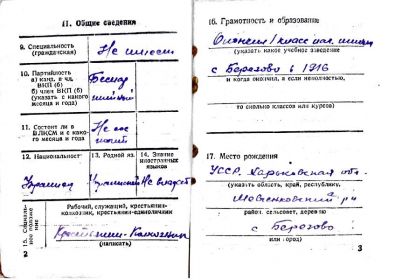 II. Общие сведения
9. Специальность
(гражданская)
Не имеет
10. Партийность
а) канд. в чл.
ВКП (б)
б) член ВКП (б)
(указать с какого
месяца и года)
Беспар
тийный
11. Состоит ли в
ВЛКСМ и с како-
го месяца и года)
Не сос
тоит
12. Национальност
13. Родной яз.
14. Знание
иностранных
языков
Украинец
Украинский
Не владеет
15. Социаль-
ное положе-
ние
Рабочий, служащий, крестьянин-
колхозник, крестьянин-единоличник
Крестьянин-Колхозник
(написать)
2
16. Грамотность и образование
Окончил 1 класс нач. школы
(указать какое учебное заведение
с Берегово в 1916
и когда окончил, а если неполностью,
то сколько классов или курсов)
17. Место рождения
УССР, Харьковская обл.
(указать область, край, республику,
р-н
район, сельсовет, деревню
с Берегово
или город)
3